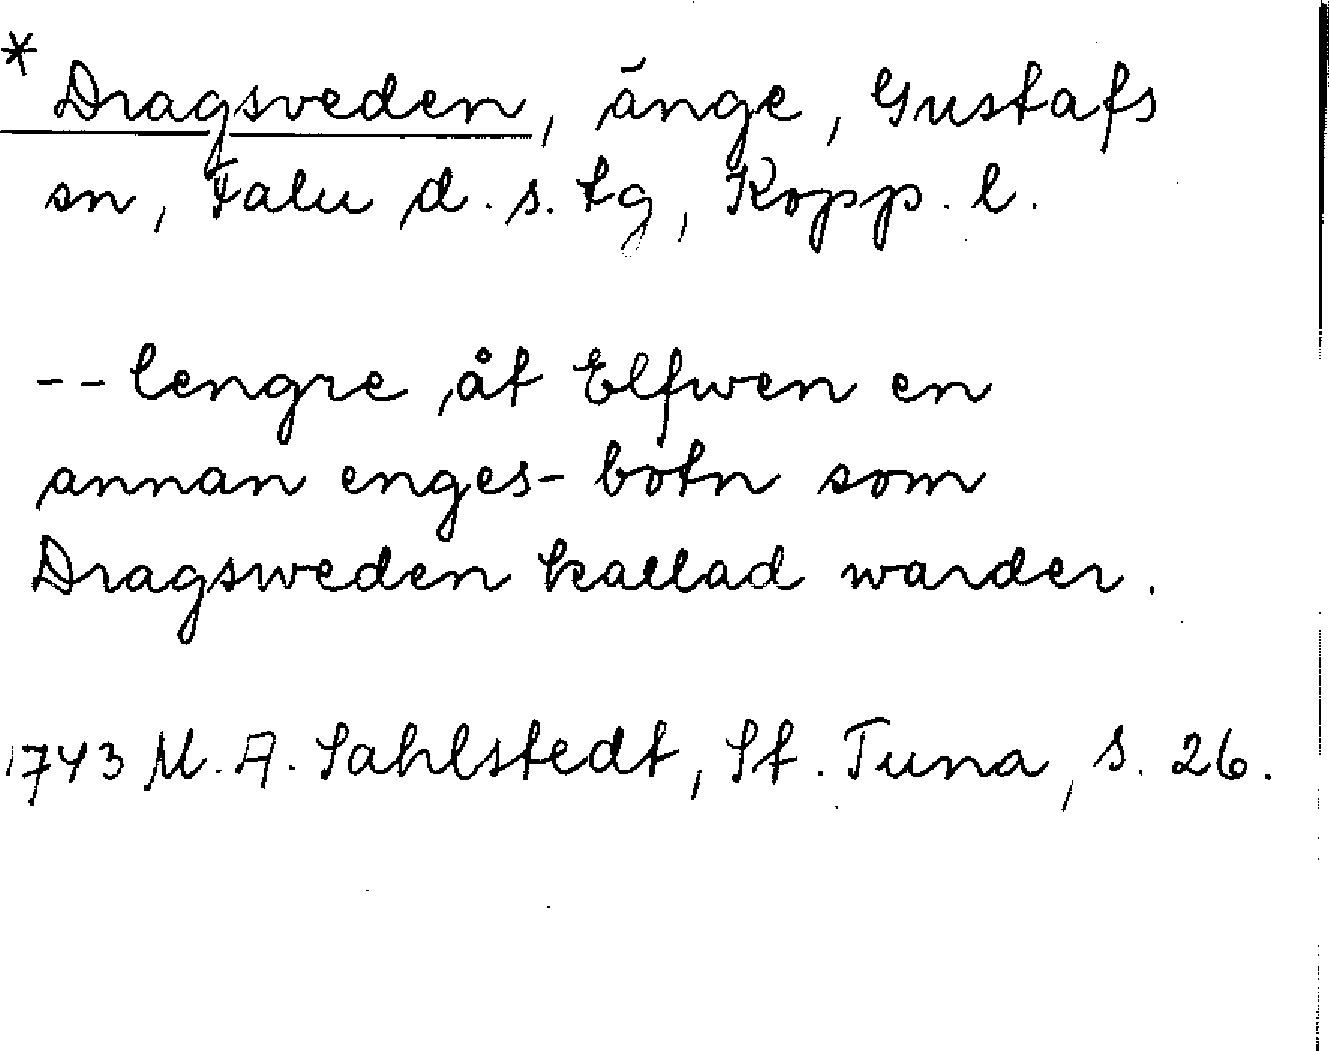 * Dragsveden, änge, Gustafs
sn, Falu d. s. tg, Kopp. l.
-- lengre åt Elfwen en
annan enges- botn som
Dragsweden kallad warder.
1743 M. A. Sahlstedt, St. Tuna, s. 26.